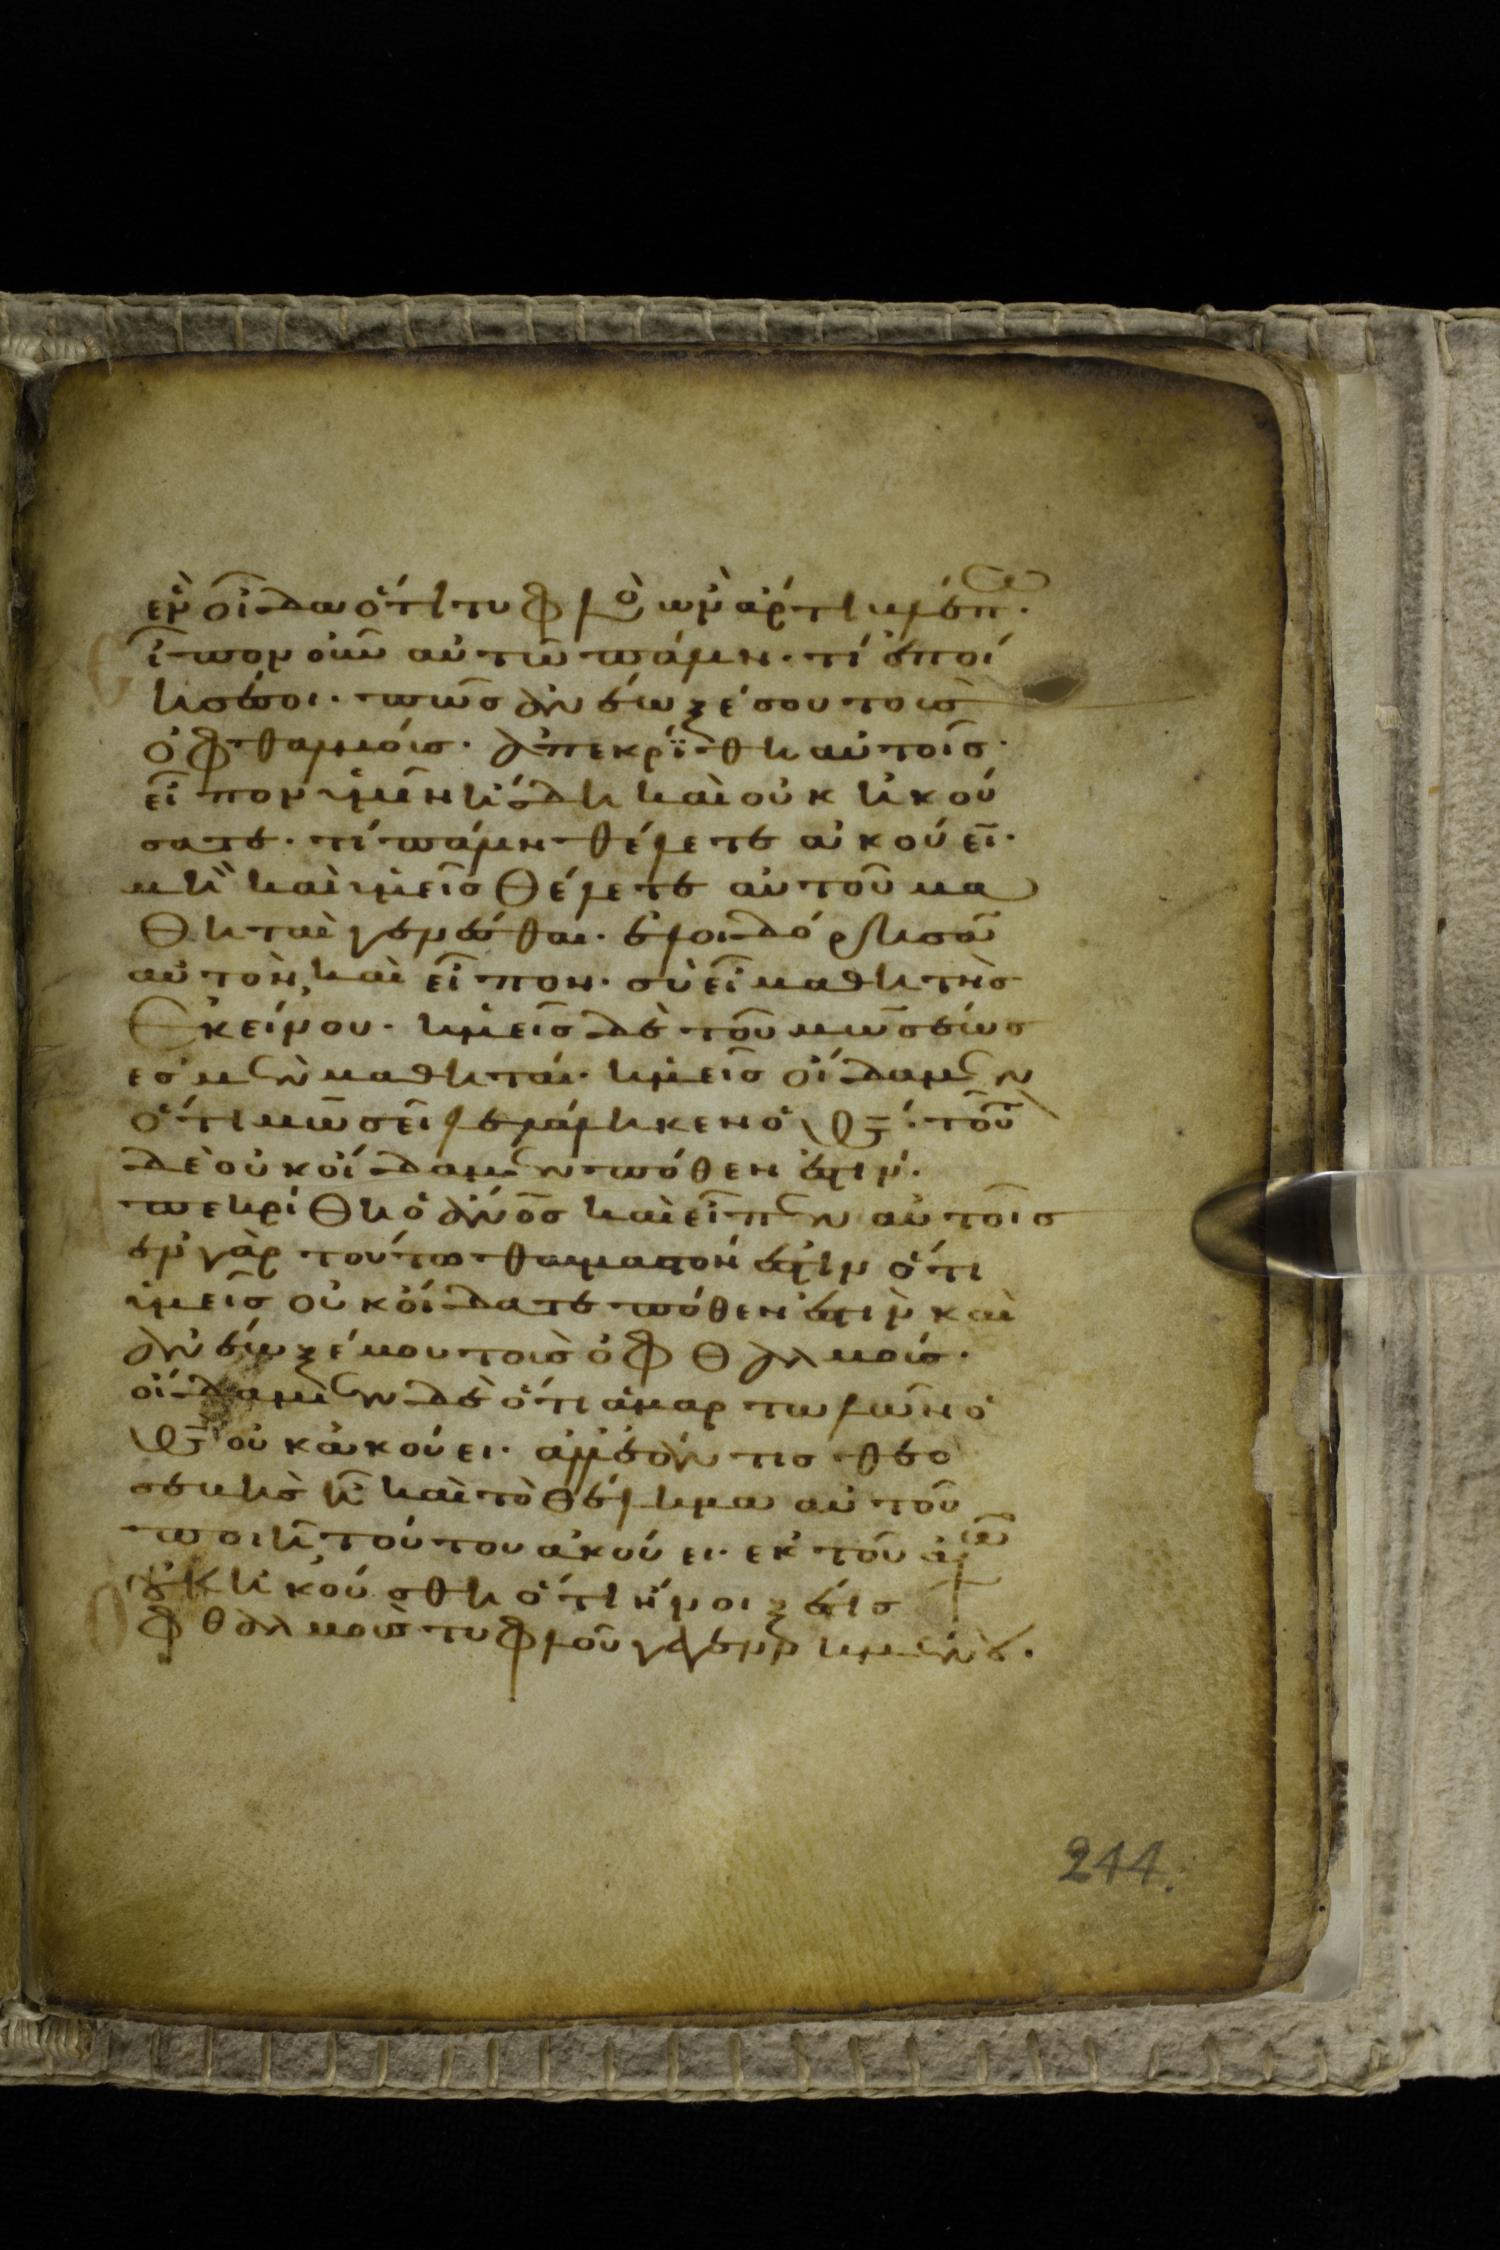 ἓν οἶδα ὅτι τυφλὸς ὢν ἄρτι βλέπω.
ἶπον οὖν αὐτῶ πάλιν· τί ἐποί
ησέ σοι· πῶς ἀνέωξέ σου τοὺς
ὀφθαλμούς· ἀπεκρίθη αὐτοῖς·
εἶπον ὑμῖν ἤδη καὶ οὐκ ἠκού
σατε· τί πάλιν θέλετε ἀκούειν·
μὴ καὶ ὑμεῖς θέλετε αὐτοῦ μα
θηταὶ γενέσθαι· ἐλοιδόρησαν
αὐτὸν, καὶ εἶπον· σὺ εἶ μαθητὴς
ἐκείνου· ἡμεῖς δὲ τοῦ μωσέως
ἐσμὲν μαθηταί· ἡμεῖς οἴδαμεν
ὅτι μωσεῖ λελάληκεν ὁ θς· τοῦτον
δὲ οὐκ οἴδαμεν πόθεν ἐστίν·
πεκρίθη ὁ ἄνος καὶ εἶπεν αὐτοῖς
ἐν γὰρ τούτω θαυμαστόν ἐστιν ὅτι
ὑμεῖς οὐκ οἴδατε πόθεν ἐστὶν καὶ
ἀνέωξέ μου τοὺς ὀφθαλμούς·
οἴδαμεν δὲ ὅτι ἁμαρτωλῶν ὁ
θς οὐκ ἀκούει· ἀλλ' ἐάν τις θεο
σεβὴς ἦ καὶ τὸ θέλημα αὐτοῦ
ποιῆ τούτου ἀκούει· ἐκ τοῦ αἰῶνος
οὐκ ἠκούσθη ὅτι ἤνοιξέ τις
φθαλμοὺς τυφλοῦ γεγεννημένου·
244.